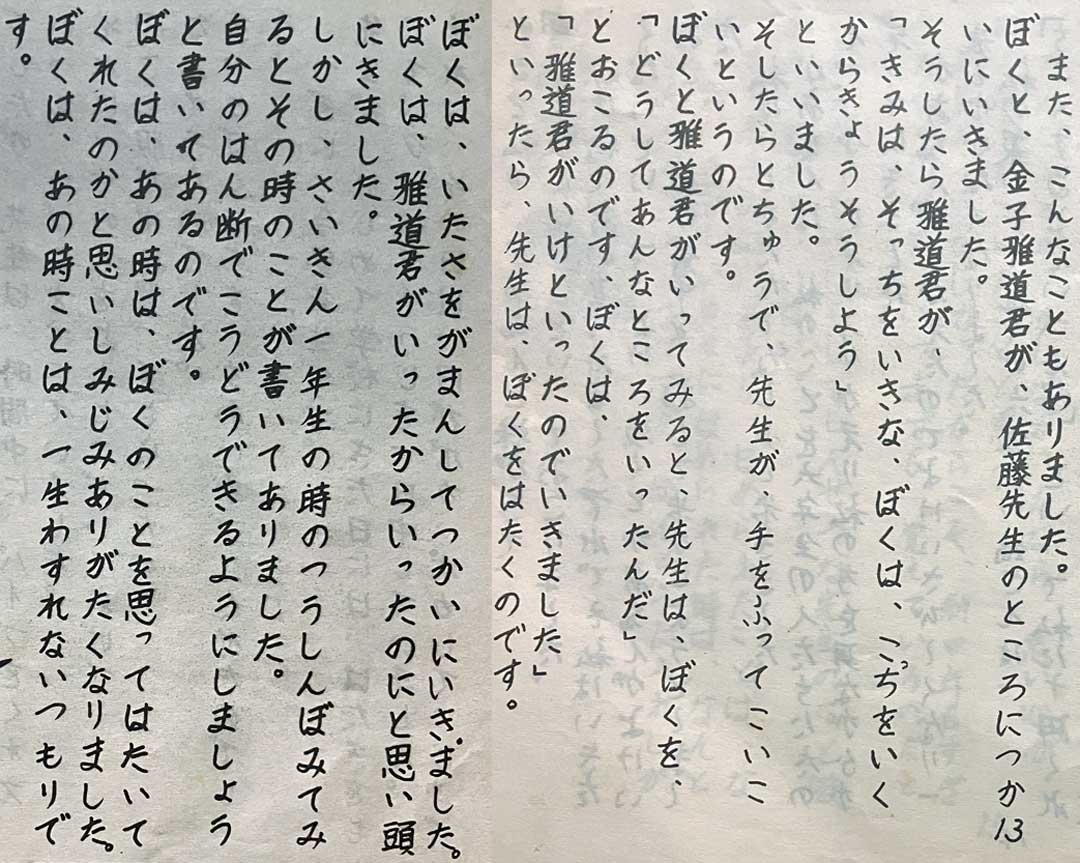 また、こんなこともありました。
ぼくと、金子雅道君が、佐藤先生のところにつか
いにいきました。
そうしたら雅道君が、
「きみは、そっちをいきな、ぼくは、こっちをいく
からきょうそうしよう」
といいました。
そしたらとちゅうで、先生が、手をふってこいこ
いというのです。
ぼくと雅道君がいってみると、先生は、ぼくを、
「どうしてあんなところをいったんだ」
とおこるのです、ぼくは、
「雅道君がいけといったのでいきました」
といったら、先生は、ぼくをはたくのです。
13
ぼくは、いたさをがまんしてつかいにいきました。
ぼくは、雅道君がいったからいったのにと思い頭
にきました。
しかし、さいきん一年生の時のつうしんぼみてみ
るとその時のことが書いてありました。
自分のはん断でこうどうできるようにしましょう
と書いてあるのです。
ぼくは、あの時は、ぼくのことを思ってはたいて
くれたのかと思いしみじみありがたくなりました。
ぼくは、あの時ことは、一生わすれないつもりで
す。